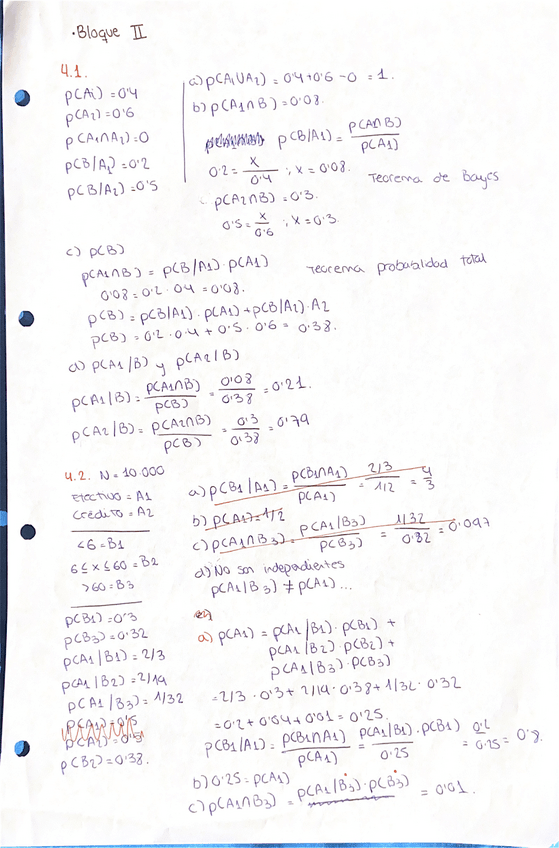 ·Bloque II
4.1.
p(A1) = 0'4
p(A2) = 0'6
p(A1∩A2) = 0
p(B/A1) = 0'2
p(B/A2) = 0'5
a) p(A1∪A2) = 0'4+0'6-0 = 1.
b) p(A1∩B) = 0'08.
p(B/A1) = p(A∩B) / p(A1)
0'2 = x / 0'4 ; x = 0'08.
Teorema de Bayes
p(A2∩B) = 0'3.
0'5 = x / 0'6 ; x = 0'3.
c) p(B)
p(A1∩B) = p(B/A1) · p(A1)
Teorema probabilidad total
0'08 = 0'2 · 0'4 = 0'08.
p(B) = p(B/A1) · p(A1) + p(B/A2) · A2
p(B) = 0'2 · 0'4 + 0'5 · 0'6 = 0'38.
d) p(A1/B) y p(A2/B)
p(A1/B) = p(A1∩B) / p(B) = 0'08 / 0'38 = 0'21.
p(A2/B) = p(A2∩B) / p(B) = 0'3 / 0'38 = 0'79
4.2. N = 10.000
Efectivo = A1
Crédito = A2
<6 = B1
6 ≤ x ≤ 60 = B2
>60 = B3
p(B1) = 0'3
p(B3) = 0'32
p(A1/B1) = 2/3
p(A1/B2) = 2/19
p(A1/B3) = 1/32
p(A1) = 0'5
p(A2) = 0'5
p(B2) = 0'38.
a) p(B1/A1) = p(B1∩A1) / p(A1) = 2/3 / 1/2 = 4/3
b) p(A1) = 1/2
c) p(A1∩B3) = p(A1/B3) / p(B3) = 1/32 / 0'32 = 0'097
d) No son independientes
p(A1/B3) ≠ p(A1)...
a) p(A1) = p(A1/B1) · p(B1) +
p(A1/B2) · p(B2) +
p(A1/B3) · p(B3)
= 2/3 · 0'3 + 2/19 · 0'38 + 1/32 · 0'32
= 0'2 + 0'04 + 0'01 = 0'25.
p(B1/A1) = p(B1∩A1) / p(A1) = p(A1/B1) · p(B1) / 0'25 = 0'2 / 0'25 = 0'8.
b) 0'25 = p(A1)
c) p(A1∩B3) = p(A1/B3) · p(B3) = 0'01.